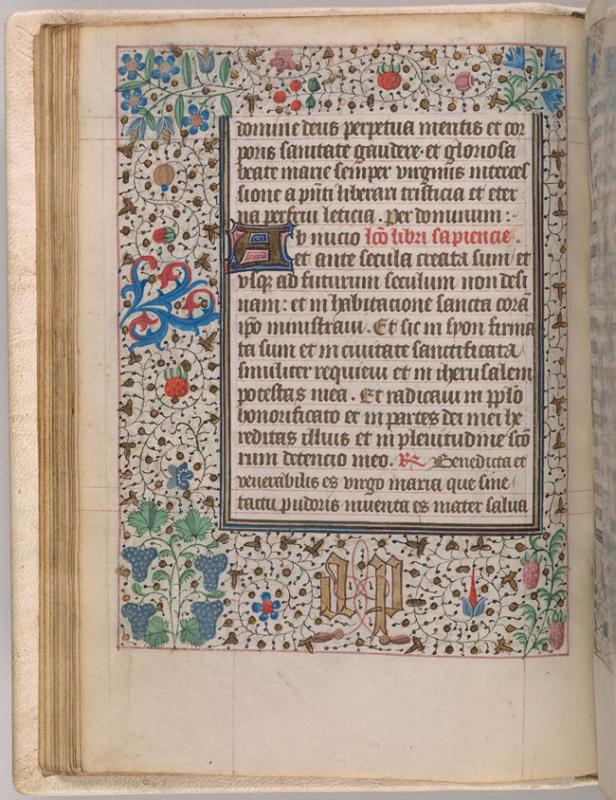 domine deus perpetua mentis et cor
poris sanitate gaudere· et gloriosa
beate marie semper virginis interces
sione a pn̄ti liberari tristicia et eter
na perfrui leticia . Per dominum :-
Ab inicio lcō libri sapiencie .
et ante secula creata sum et
vsqȝ ad futurum seculum non desi
nam : et in habitacione sancta corā
ipō ministraui . Et sic in syon firma
ta sum et in ciuitate sanctificata
similiter requieui et in iherusalem
potestas mea . Et radicaui in pp̄lo
honorificato et in partes dei mei he
reditas illius et in plenitudine scō
rum detencio meo . R̄ Benedicta et
venerabilis es virgo maria que sine
tactu pudoris inuenta es mater salua
a p